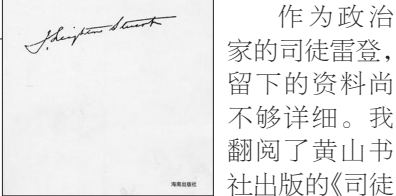 J. Leighton Stuart
海南出版社
作为政治
家的司徒雷登，
留下的资料尚
不够详细。我
翻阅了黄山书
社出版的《司徒